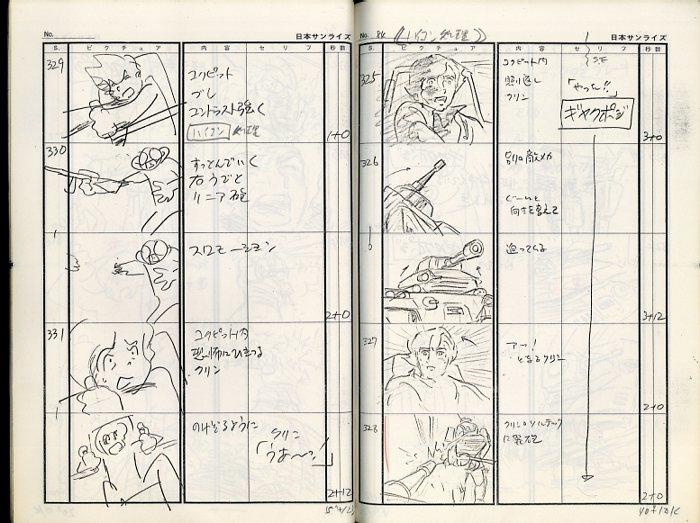 No.
日本サンライズ
S.
ピクチュア
内容
セリフ
秒数
329
コクピット
ブレ
コントラスト強く
ハイコン 処理
1+0
330
すっとんでいく
右うでと
リニア砲
スローモーション
2+0
331
コクピット内
恐怖にひきつる
クリン
のけぞるように
クリン
「うおーっ!」
2+12
No.
(ハイコン処理)
日本サンライズ
S.
ピクチュア
内容
セリフ
秒数
325
コクピット内
照り返し
クリン
SE
「やった!!」
ギャクポジ
3+0
326
別の敵メカ
ぐーんと
向きを変えて
迫ってくる
3+12
327
アー!
となるクリン
2+0
328
に発砲
2+0